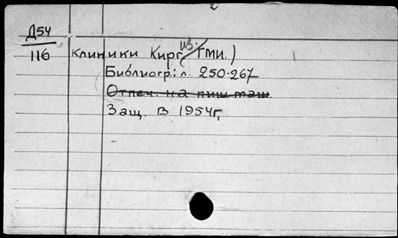 2
Д54
116 клиники Кирг. из. ГМИ.)
Библиогр: л. 250-267
Отпеч. на пиш маш.
Защ. в 1954г.